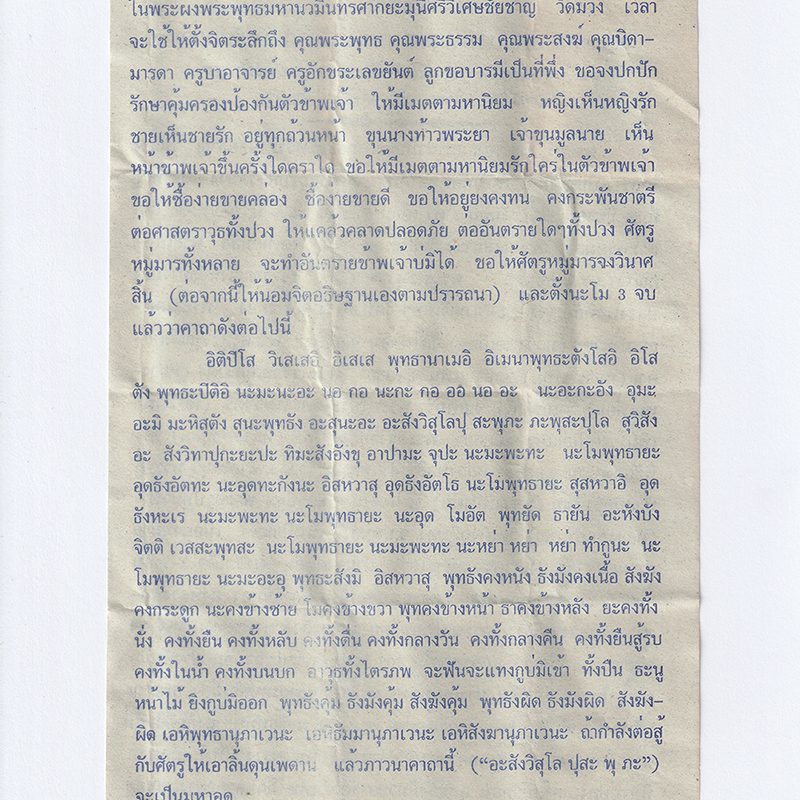 ในพระผงพระพุทธมหานวมินทรศากยะมุนีศรีวิเศษชัยชาญ วัดม่วง เวลา
จะใช้ให้ตั้งจิตระลึกถึง คุณพระพุทธ คุณพระธรรม คุณพระสงฆ์ คุณบิดา–
มารดา ครูบาอาจารย์ ครูอักขระเลขยันต์ ลูกขอบารมีเป็นที่พึ่ง ขอจงปกปัก
รักษาคุ้มครองป้องกันตัวข้าพเจ้า ให้มีเมตตามหานิยม หญิงเห็นหญิงรัก
ชายเห็นชายรัก อยู่ทุกถ้วนหน้า ขุนนางท้าวพระยา เจ้าขุนมูลนาย เห็น
หน้าข้าพเจ้าขึ้นครั้งใดคราใด ขอให้มีเมตตามหานิยมรักใคร่ในตัวข้าพเจ้า
ขอให้ซื้อง่ายขายคล่อง ซื้อง่ายขายดี ขอให้อยู่ยงคงทน คงกระพันชาตรี
ต่อศาสตราวุธทั้งปวง ให้แคล้วคลาดปลอดภัย ต่ออันตรายใดๆทั้งปวง ศัตรู
หมู่มารทั้งหลาย จะทำอันตรายข้าพเจ้าบ่มิได้ ขอให้ศัตรูหมู่มารจงวินาศ
สิ้น (ต่อจากนี้ให้น้อมจิตอธิษฐานเองตามปรารถนา) และตั้งนะโม 3 จบ
แล้วว่าคาถาดังต่อไปนี้
อิติปิโส วิเสเสอิ อิเสเส พุทธานาเมอิ อิเมนาพุทธะตังโสอิ อิโส
ตัง พุทธะปิติอิ นะมะนะอะ นอ กอ นะกะ กอ ออ นอ อะ นะอะกะอัง อุมะ
อะมิ มะหิสุตัง สุนะพุทธัง อะสุนะอะ อะสังวิสุโลปุ สะพุภะ ภะพุสะปุโล สุวิสัง
อะ สังวิทาปุกะยะปะ ทิมะสังอังขุ อาปามะ จุปะ นะมะพะทะ นะโมพุทธายะ
อุดธังอัตทะ นะอุดทะกังนะ อิสหวาสุ อุดธังอัตโธ นะโมพุทธายะ สุสหวาอิ อุด
ธังหะเร นะมะพะทะ นะโมพุทธายะ นะอุด โมอัต พุทยัด ธายัน อะหังบัง
จิตติ เวสสะพุทสะ นะโมพุทธายะ นะมะพะทะ นะหย่า หย่า หย่า ทำกูนะ นะ
โมพุทธายะ นะมะอะอุ พุทธะสังมิ อิสหวาสุ พุทธังคงหนัง ธังมังคงเนื้อ สังฆัง
คงกระดูก นะคงข้างซ้าย โมคงข้างขวา พุทคงข้างหน้า ธาคงข้างหลัง ยะคงทั้ง
นั่ง คงทั้งยืน คงทั้งหลับ คงทั้งตื่น คงทั้งกลางวัน คงทั้งกลางคืน คงทั้งยืนสู้รบ
คงทั้งในน้ำ คงทั้งบนบก อาวุธทั้งไตรภพ จะฟันจะแทงกูบ่มิเข้า ทั้งปืน ธะนู
หน้าไม้ ยิงกูบ่มิออก พุทธังคุ้ม ธังมังคุ้ม สังฆังคุ้ม พุทธังผิด ธังมังผิด สังฆัง–
ผิด เอหิพุทธานุภาเวนะ เอหิธัมมานุภาเวนะ เอหิสังฆานุภาเวนะ ถ้ากำลังต่อสู้
กับศัตรูให้เอาลิ้นดุนเพดาน แล้วภาวนาคาถานี้ (“อะสังวิสุโล ปุสะ พุ ภะ”)
จะเป็นมหาอุด